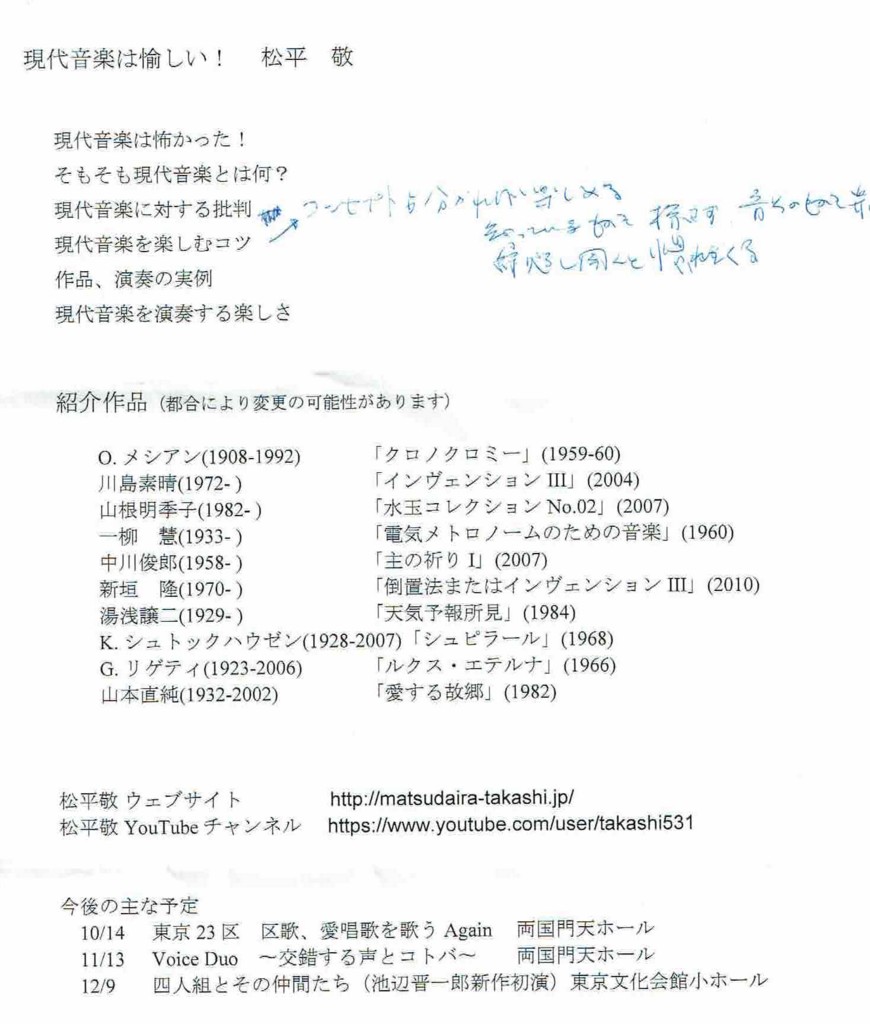 現代音楽は愉しい！　松平　敬
現代音楽は怖かった！
そもそも現代音楽とは何？
現代音楽に対する批判
コンセプトも分かれば楽しめる
現代音楽を楽しむコツ
作品、演奏の実例
現代音楽を演奏する楽しさ
紹介作品（都合により変更の可能性があります）
O. メシアン(1908-1992)　「クロノクロミー」(1959-60)
川島素晴(1972- )　「インヴェンション III」(2004)
山根明季子(1982- )　「水玉コレクション No.02」(2007)
一柳　慧(1933- )　「電気メトロノームのための音楽」(1960)
中川俊郎(1958- )　「主の祈り I」(2007)
新垣　隆(1970- )　「倒置法またはインヴェンション III」(2010)
湯浅譲二(1929- )　「天気予報所見」(1984)
K. シュトックハウゼン(1928-2007)「シュピラール」(1968)
G. リゲティ(1923-2006)　「ルクス・エテルナ」(1966)
山本直純(1932-2002)　「愛する故郷」(1982)
松平敬 ウェブサイト　http://matsudaira-takashi.jp/
松平敬 YouTube チャンネル　https://www.youtube.com/user/takashi531
今後の主な予定
10/14　東京 23 区　区歌、愛唱歌を歌う Again　両国門天ホール
11/13　Voice Duo　～交錯する声とコトバ～　両国門天ホール
12/9　四人組とその仲間たち（池辺晋一郎新作初演）東京文化会館小ホール